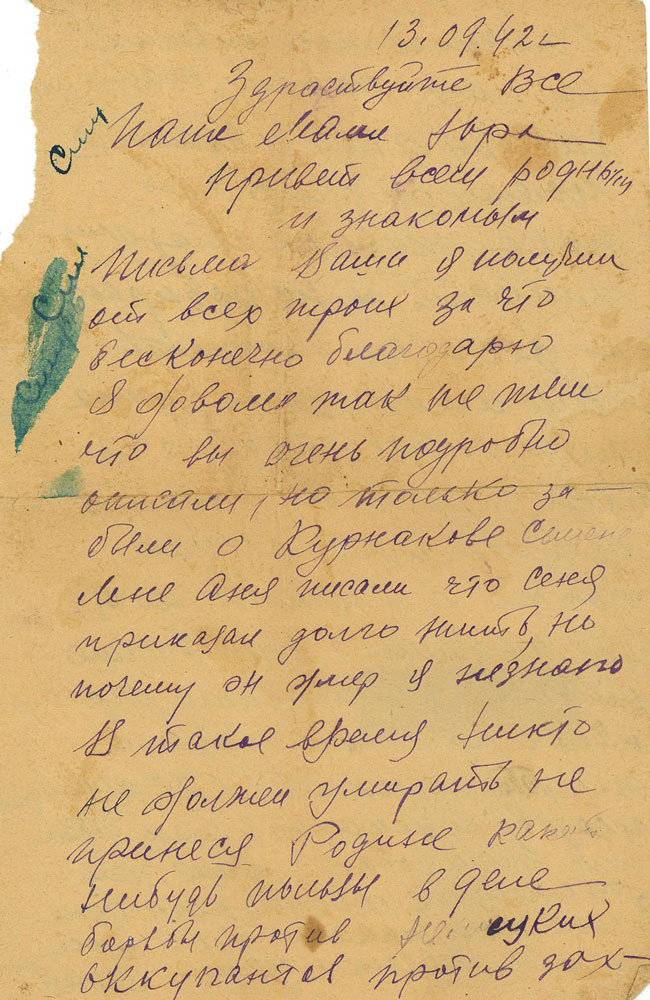 13.09.42г
Здраствуйте Все
Папа Мама Юра
привет всем родным
и знакомым
Письма Ваши я получил
от всех троих за что
бесконечно благодарю
Я доволен так же тем
что вы очень подробно
описали, но только за-
были о Курнакове Семене
Мне Аня писали что Сеня
приказал долго жить, но
почему он умер я незнаю
В такое время никто
не должен умирать не
принеся Родине какой
нибудь пользы в деле
борьбы против немецких
оккупантов против зах-